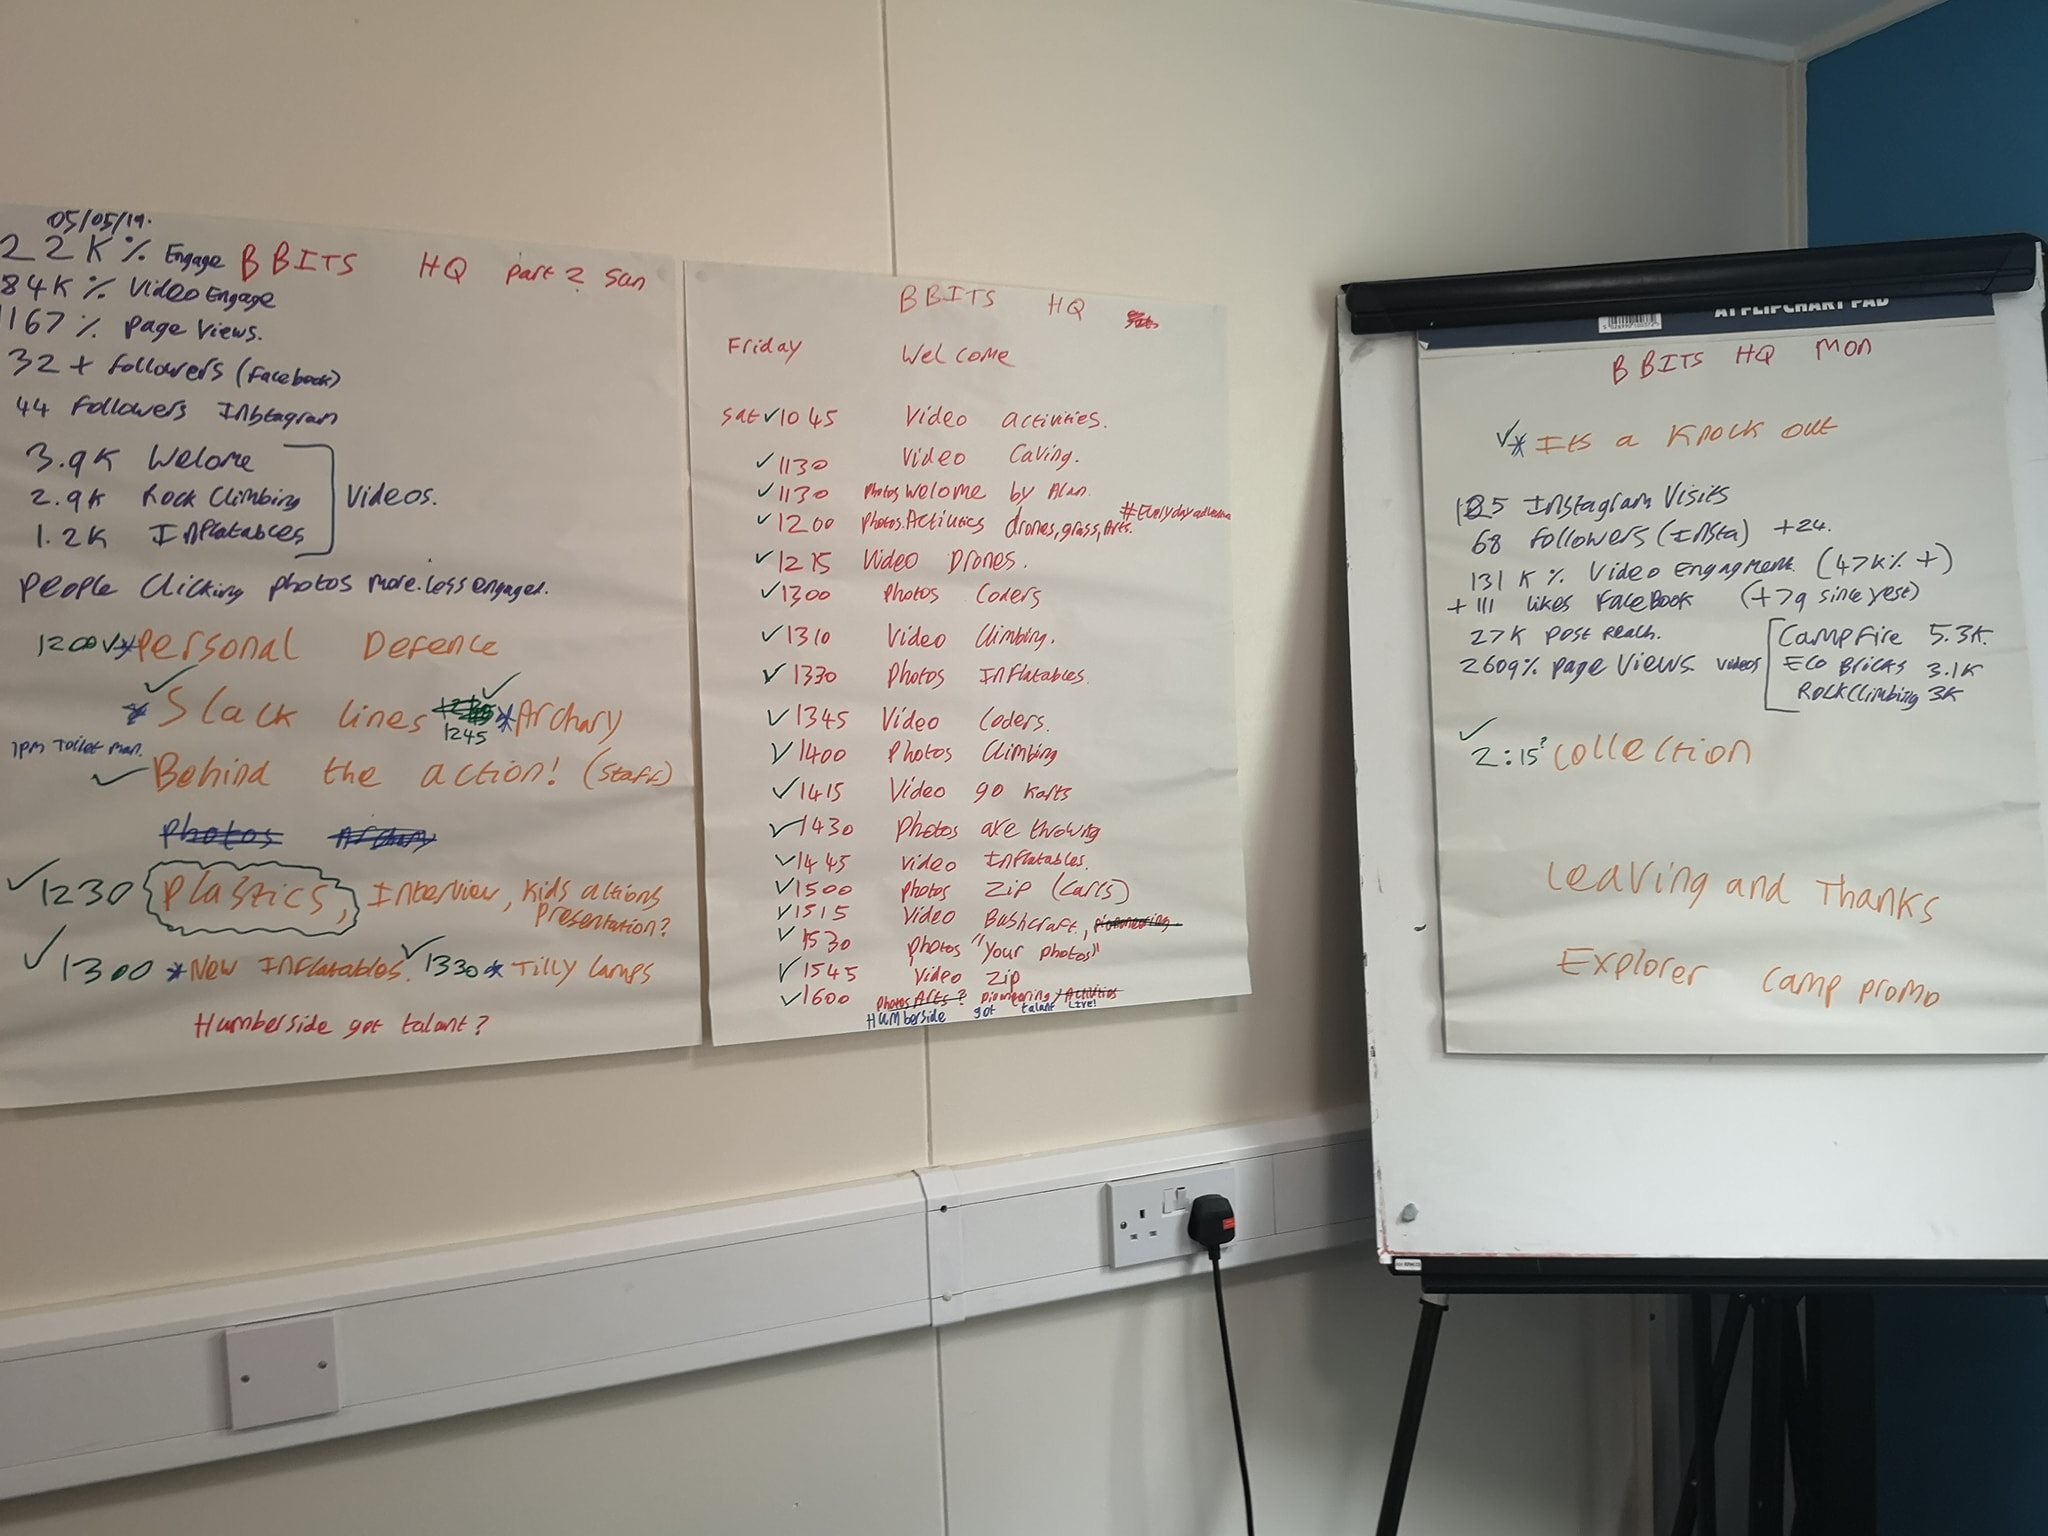 05/05/19.
22K% Engage
BBITS HQ part 2 Sun
84K% Video Engage
1167% page Views.
32 + followers (facebook)
44 followers Instagram
3.9K Welome
2.9K Rock Climbing
1.2K Inflatables
Videos.
People Clicking photos more. Less engaged.
1200 ✓ * Personal Defence
✓ * Slack lines 1245 ✓ * Archary
1pm Toilet man.
✓ Behind the action! (Staff)
Photos Archary
✓ 1230 Plastics, Interview, kids actions
presentation?
✓ 1300 * New Inflatables. ✓ 1330 * Tilly lamps
Humberside got talant?
BBITS HQ
Friday Welcome
Sat ✓ 1045 Video activities.
✓ 1130 Video Caving.
✓ 1130 Photos Welome by Alan.
✓ 1200 photos Activities drones, grass, Arts.
✓ 1215 Video Drones.
✓ 1300 Photos Coders
✓ 1310 Video Climbing.
✓ 1330 Photos Inflatables.
✓ 1345 Video Coders.
✓ 1400 Photos Climbing
✓ 1415 Video go karts
✓ 1430 Photos axe throwing
✓ 1445 Video Inflatables.
✓ 1500 photos Zip (Carts)
✓ 1515 Video Bushcraft, pioneering
✓ 1530 photos "your photos"
✓ 1545 Video Zip
✓ 1600 photos Arts? pioneering / Activities
Humberside got talant Live!
A1 FLIPCHART PAD
BBITS HQ Mon
✓ * Its a Knock out
125 Instagram Visits
68 followers (Insta) +24.
131K% Video Engagment (47K% +)
+111 likes FaceBook (+79 since yest)
27K post reach.
2609% page Views
Videos
CampFire 5.3K.
Eco Bricks 3.1K
Rock Climbing 3K
✓ 2:15? Collection
Leaving and Thanks
Explorer camp promo